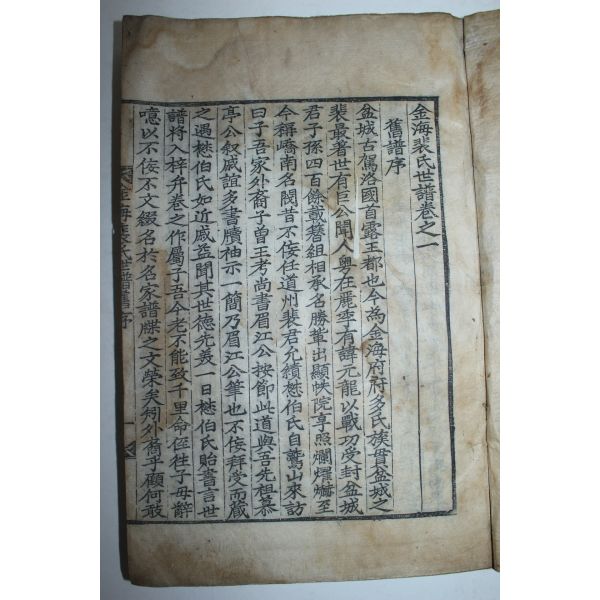 金海裴氏世譜卷之一
舊譜序
盆城古駕洛國首露王都也今為金海府府多氏族貫盆城之
裴最著世有巨公聞人粤在麗季有諱元龍以戰功受封盆城
君子孫四百餘載簪組相承名勝輩出顯帙院享照爛耀爀至
今稱嶠南名閥昔不佞任道州裴君允績楙伯氏自鷲山來訪
曰子吾家外裔子曾王考尚書眉江公按節此道與吾先祖慕
亭公叙戚誼多書牘袖示一簡乃眉江公筆也不佞拜受而蔵
之遇楙伯氏如近戚益聞其世德先羙一日楙伯氏貽書言世
譜将入梓弁卷之作屬子吾今老不能致千里命侄往子毋辭
噫以不佞不文綴名於名家譜牒之文榮矣矧外裔乎顧何敢
金海裴氏世譜舊序 一